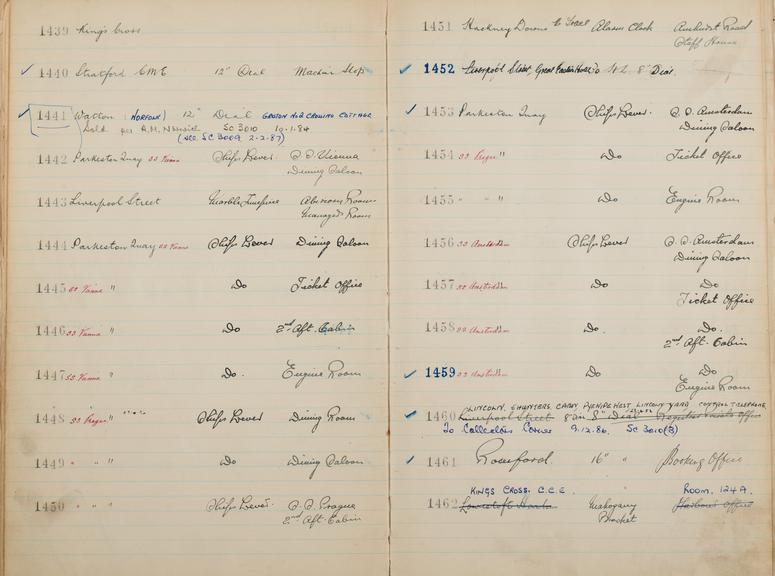 1439 Kings Cross
1440 Stratford C.M.E 12" Dial Machine Shop
1441 Watton (NORFOLK) 12" Dial GROSTON NO2 CROSSING COTTAGE
Sold per A.M. Norwich SC 3010 10.1.84
(SEE SC 3009 2-2-87)
1442 Parkeston Quay SS Vienna Ships Lever S.S Vienna
Dining Saloon
1443 Liverpool Street Marble Timepiece Room
Managers Room
1444 Parkeston Quay SS Vienna Ships Lever Dining Saloon
1445 SS Vienna " Do Ticket Office
1446 SS Vienna " Do 2nd Aft. Cabin
1447 SS Vienna " Do. Engine Room
1448 SS Prague " Ships Lever Dining Room
1449 " " " Do Dining Saloon
1450 " " " Ships Lever. S.S. Prague
2nd Aft. Cabin
1451 Hackney Downs Alarm Clock Amhurst Road
Staff House
1452 Liverpool Street, 8" Dial
1453 Parkeston Quay Ships Lever S.S. Amsterdam
Dining Saloon
1454 SS Prague " Do Ticket Office
1455 " " " Do Engine Room
1456 SS Amsterdam Ships Lever S.S. Amsterdam
Dining Saloon
1457 SS Amsterdam Do Do
Ticket Office
1458 SS Amsterdam Do. Do.
2nd Aft. Cabin
1459 SS Amsterdam Do Do
Engine Room
LINCOLN, ENGINEERS LINCOLN YARD CONTROL TELEPHONE
1460 Liverpool Street 8" Dial Office
To Collectors Corner 9.12.86. SC 3010(B)
1461 Romford. 16" " Booking Office
KINGS CROSS. C.C.E. ROOM. 124A.
1462 Lowestoft Harbour Mahogany Harbour Office
Bracket